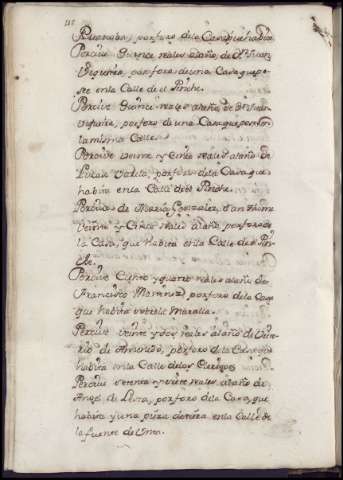 por foro dela Casa que habita
Percive quince reales alaño, de
por foro de una Casa que po-
see en la Calle del Pinche.
Percive quince reales alaño, de
por foro de una Casa que posee en
la misma Calle.
Percive veinte y Cinco reales alaño de
Lucas Varela, por foro dela Casa que
habita en la Calle del Pinche.
Percive de Maria Gonzalez,
veinte y Cinco reales alaño, por foro de
la Casa, que habita en la Calle del Pin-
che.
Percive Ciento y quatro reales alaño de
Francisco Martinez, por foro dela Casa
que habita
Percive veinte y dos reales alaño de
de por foro dela Casa que
habita en la Calle delos Clerigos.
Percive setenta y siete reales alaño de
Angel de Leira, por foro dela Casa, que
habita y una pieza detierra en la Calle de
la fuente de